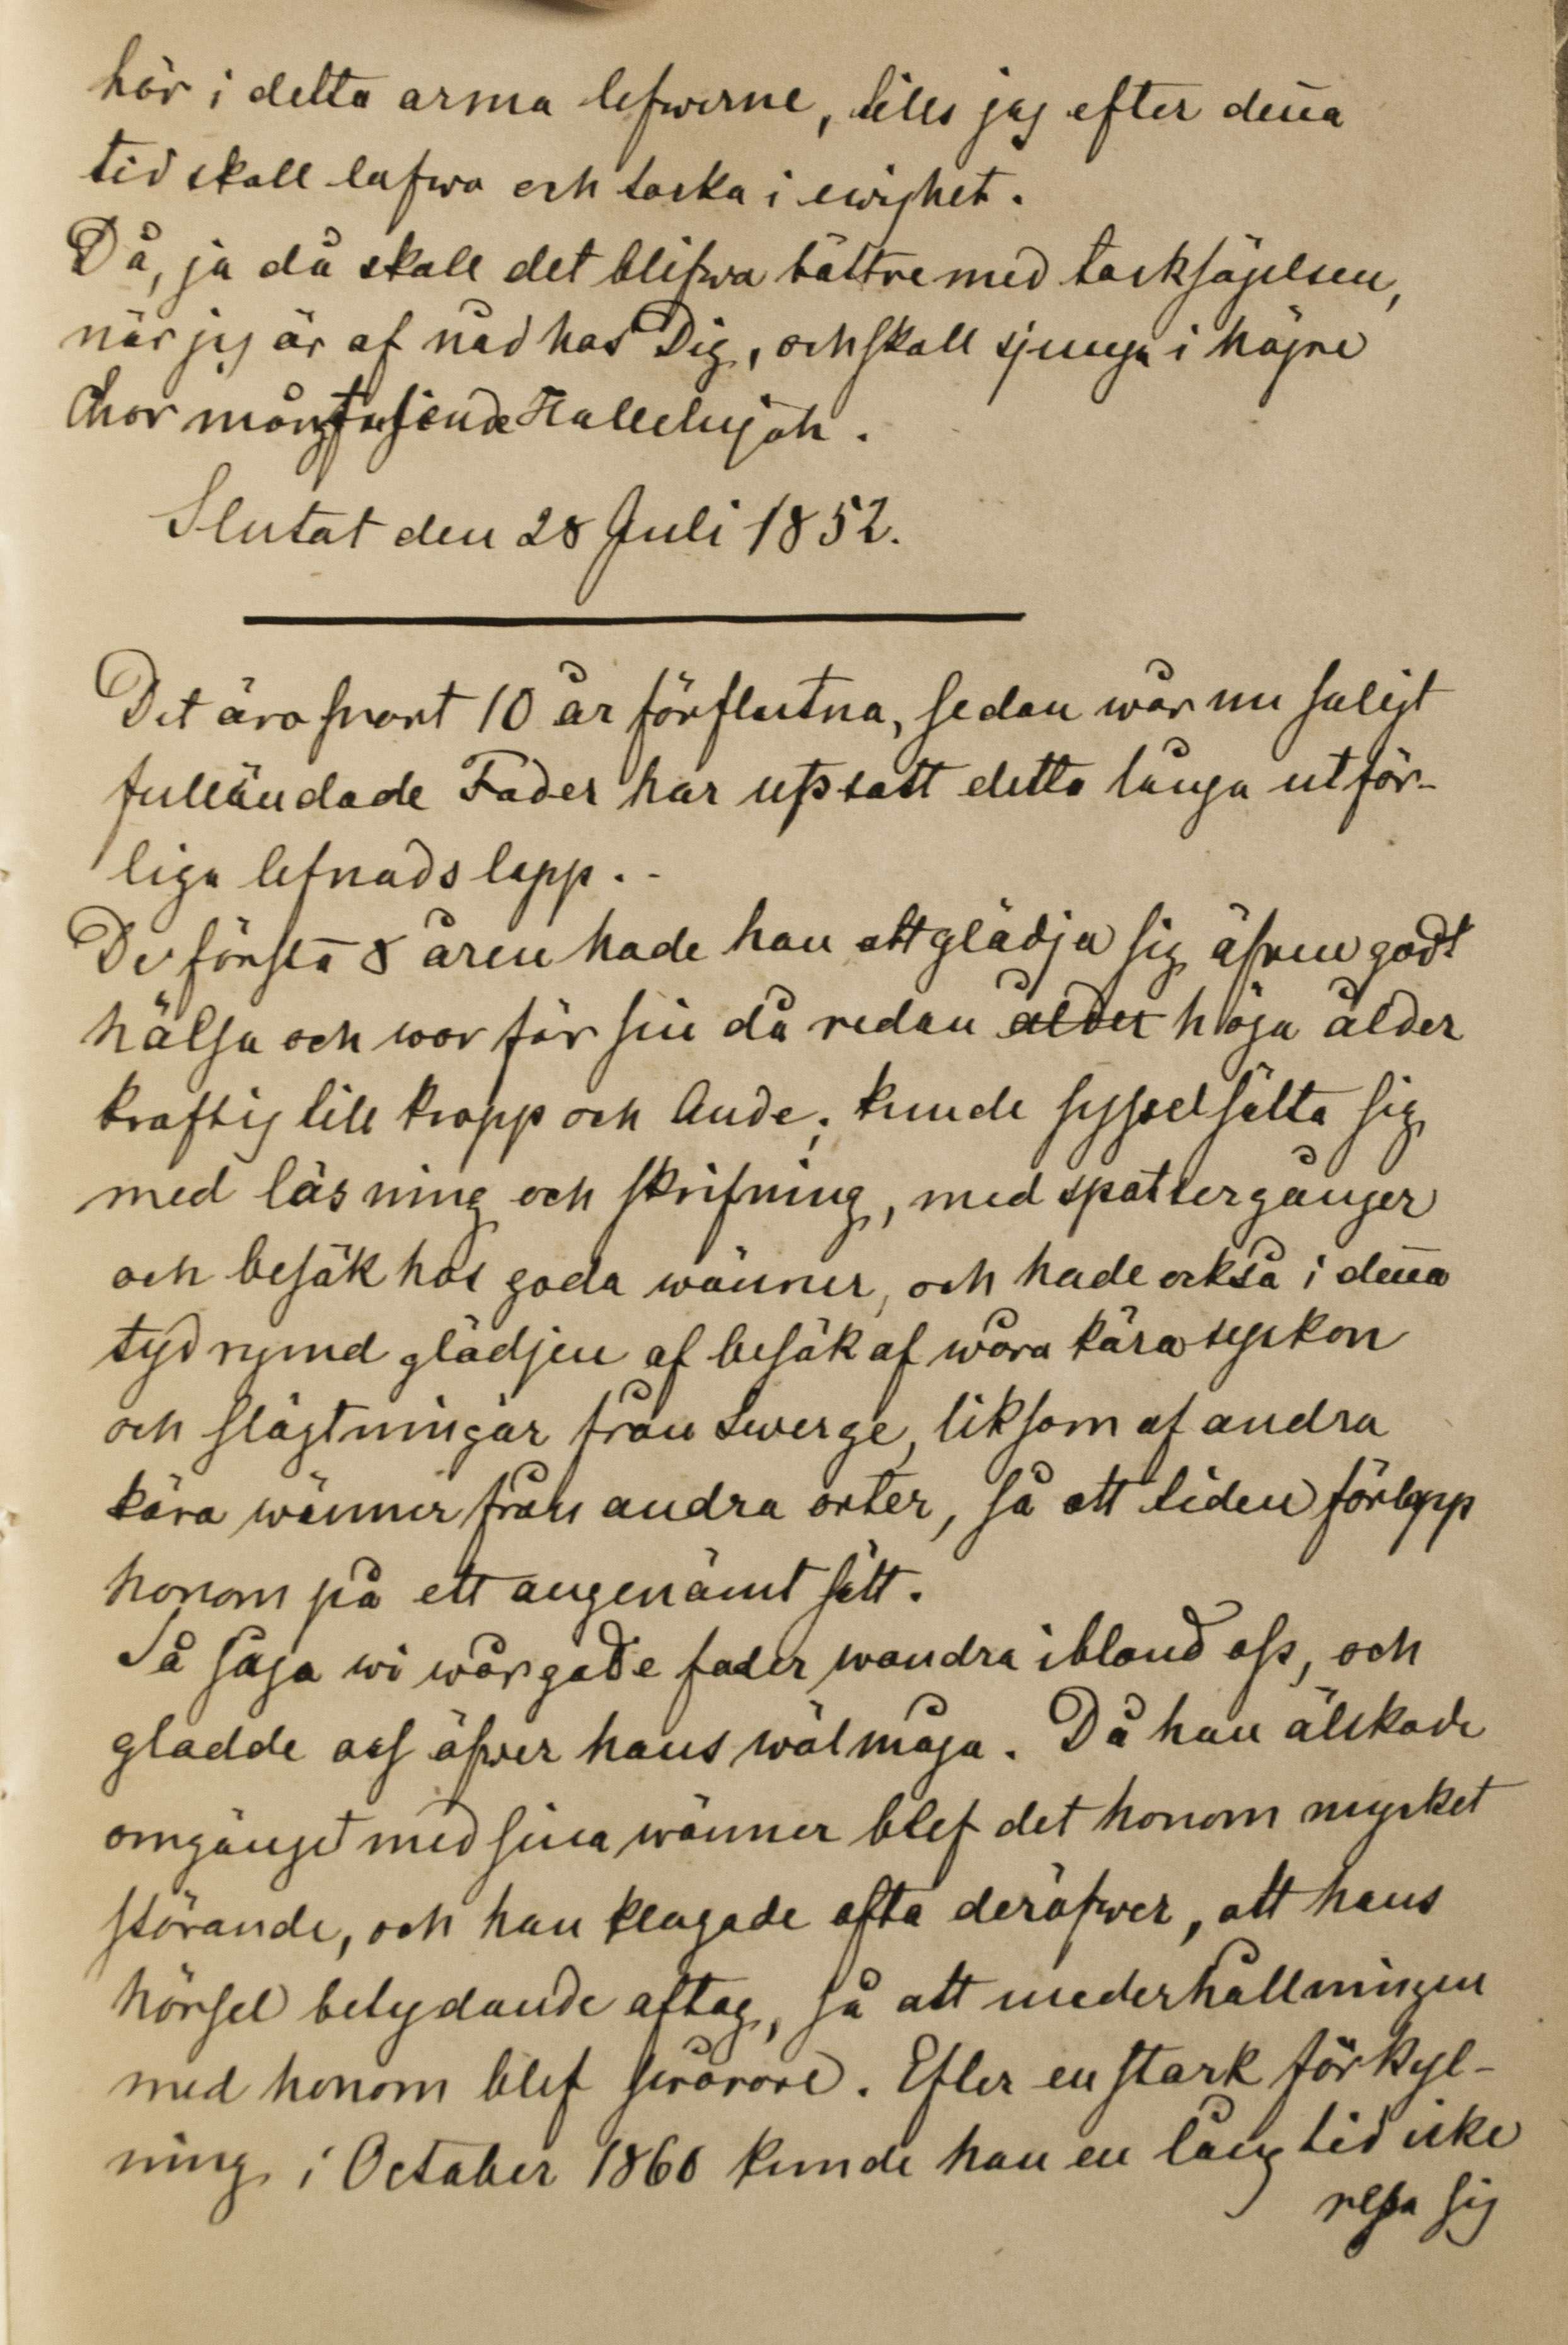 här i detta arma lefwerne, tills jag efter dena
tid skall lofwa och tacka i ewighet.
Då, ja då skall det blifwa bättre med tacksägelsen,
när jag är af nåd hos Dig, och skall sjunga i högre
Chor mångtusende Hallelujah.
Slutat den 28 Juli 1852.
Det äro snart 10 år förflutna, sedan wår nu saligt
fulländade Fader har upsatt detta långa utför-
liga lefnadslopp.-
De första 8 åren hade han att glädja sig äfven godt
hälsa och war för sin då redan ålder höga ålder
kraftig till kropp och Ande; kunde sysselsätta sig
med läsning och skrifning, med spatsergånger
och besök hos goda wänner, och hade också i dena
tydrymd glädjen af besök af wåra kära syskon
och slägtningar från Swerge, liksom af andra
kära wänner från andra orter, så att tiden förlopp
honom på ett angenämt sätt.
Så sågo wi wår gode fader wandra ibland oss, och
gladde oss öfwer hans wälmåga. Då han älskade
omgänget med sina wänner blef det honom mycket
störande, och han klagade ofta deröfwer, att hans
hörsel betydande aftog, så att underhållningen
med honom blef swårare. Efter en stark förkyl-
ning i October 1860 kunde han en lång tid icke
resa sig